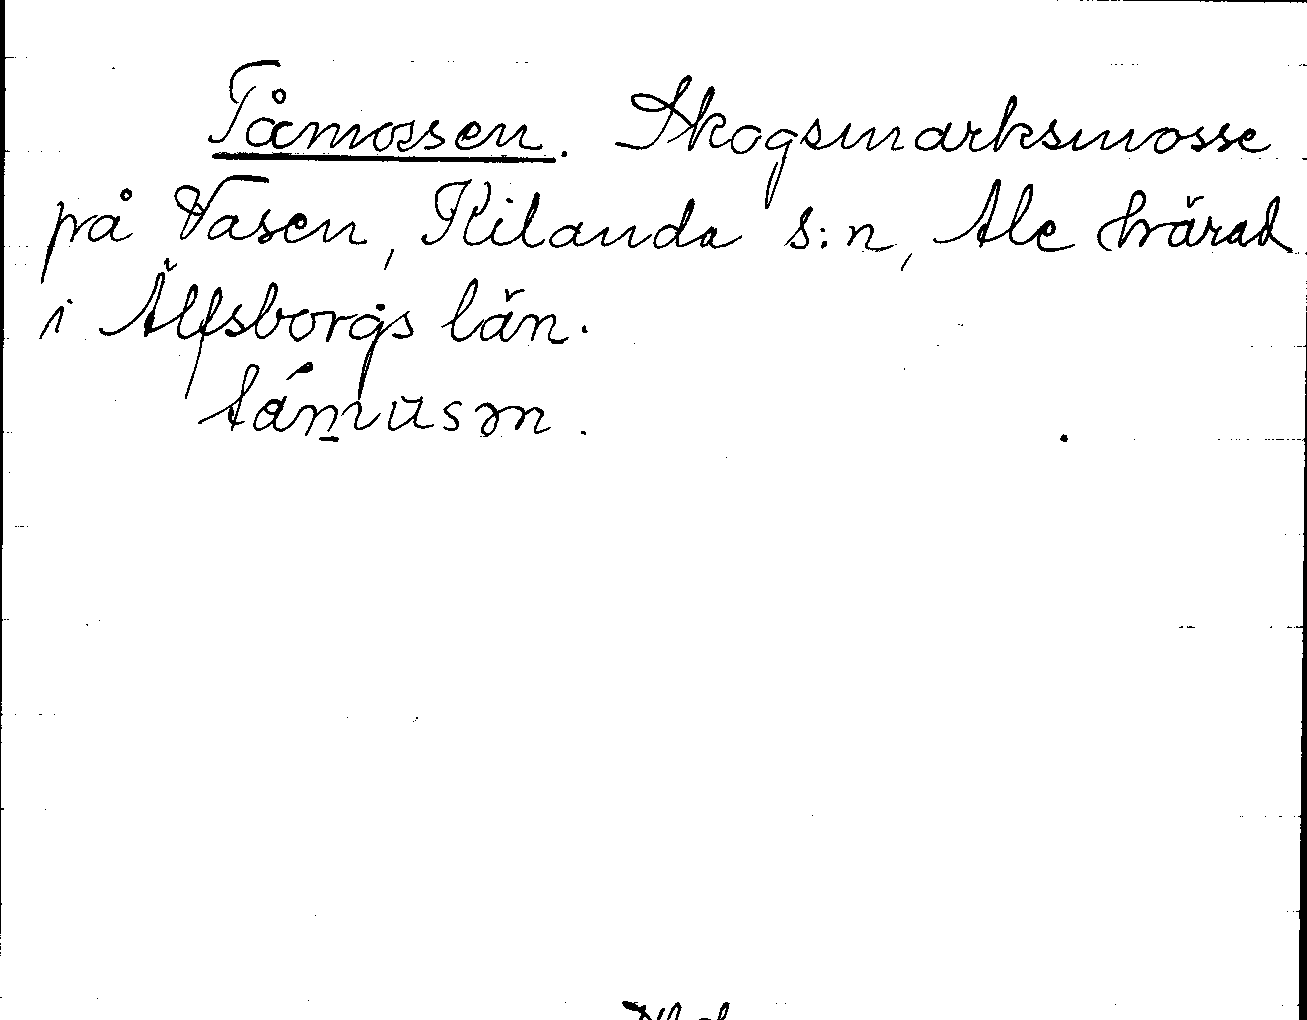 Tåmossen. Skogsmarksmosse
på Vasen, Kilanda s:n, Ale härad
i Älfsborgs län.
támusən.